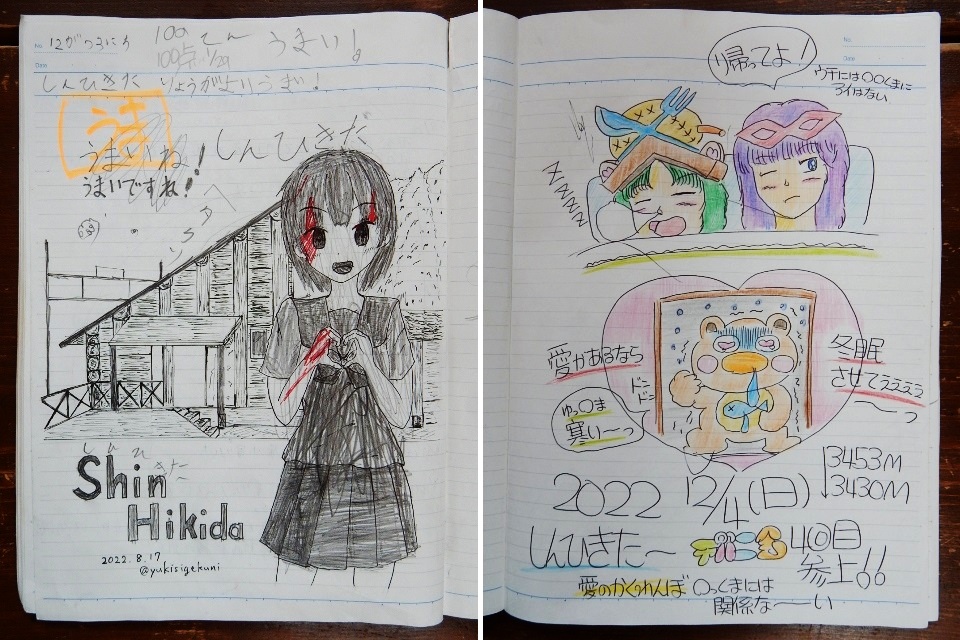 No.
Date
12がつ3にち
100てん うまい!
100点 1/29
しんひきた りょうがよりうまい!
うま
うまいね!
うまいですね!
しんひきだ
しんひきた
Shin
Hikida
2022.8.17
@yukisigekuni
No.
Date
帰ってよ!
ウチには〇〇くまに
アイはない
ZZZZZ
愛があるなら
ドンドン
ゆっ〇ま
寒い〜っ
冬眠
させてぇぇぇぇ
〜っ
3453M
↓3430M
2022 12/4(日)
しんひきた〜
4回目
参上!!
愛のかくれんぼ 〇っくまには
関係な〜い